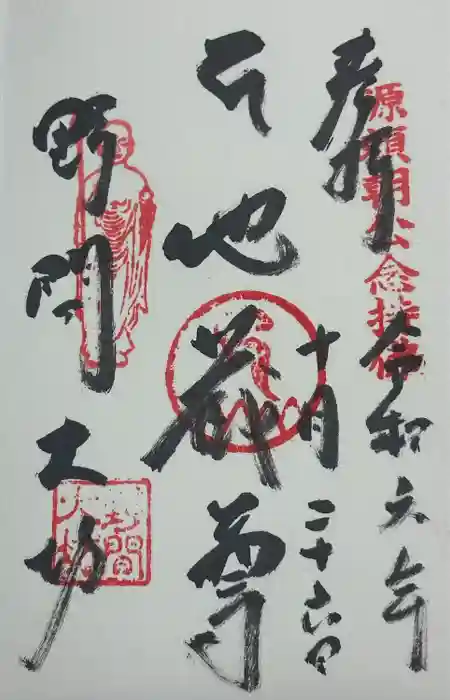 奉拝
源頼朝公念持佛
令和六年
十月
二十六日
地蔵尊
野間大坊
野間大坊